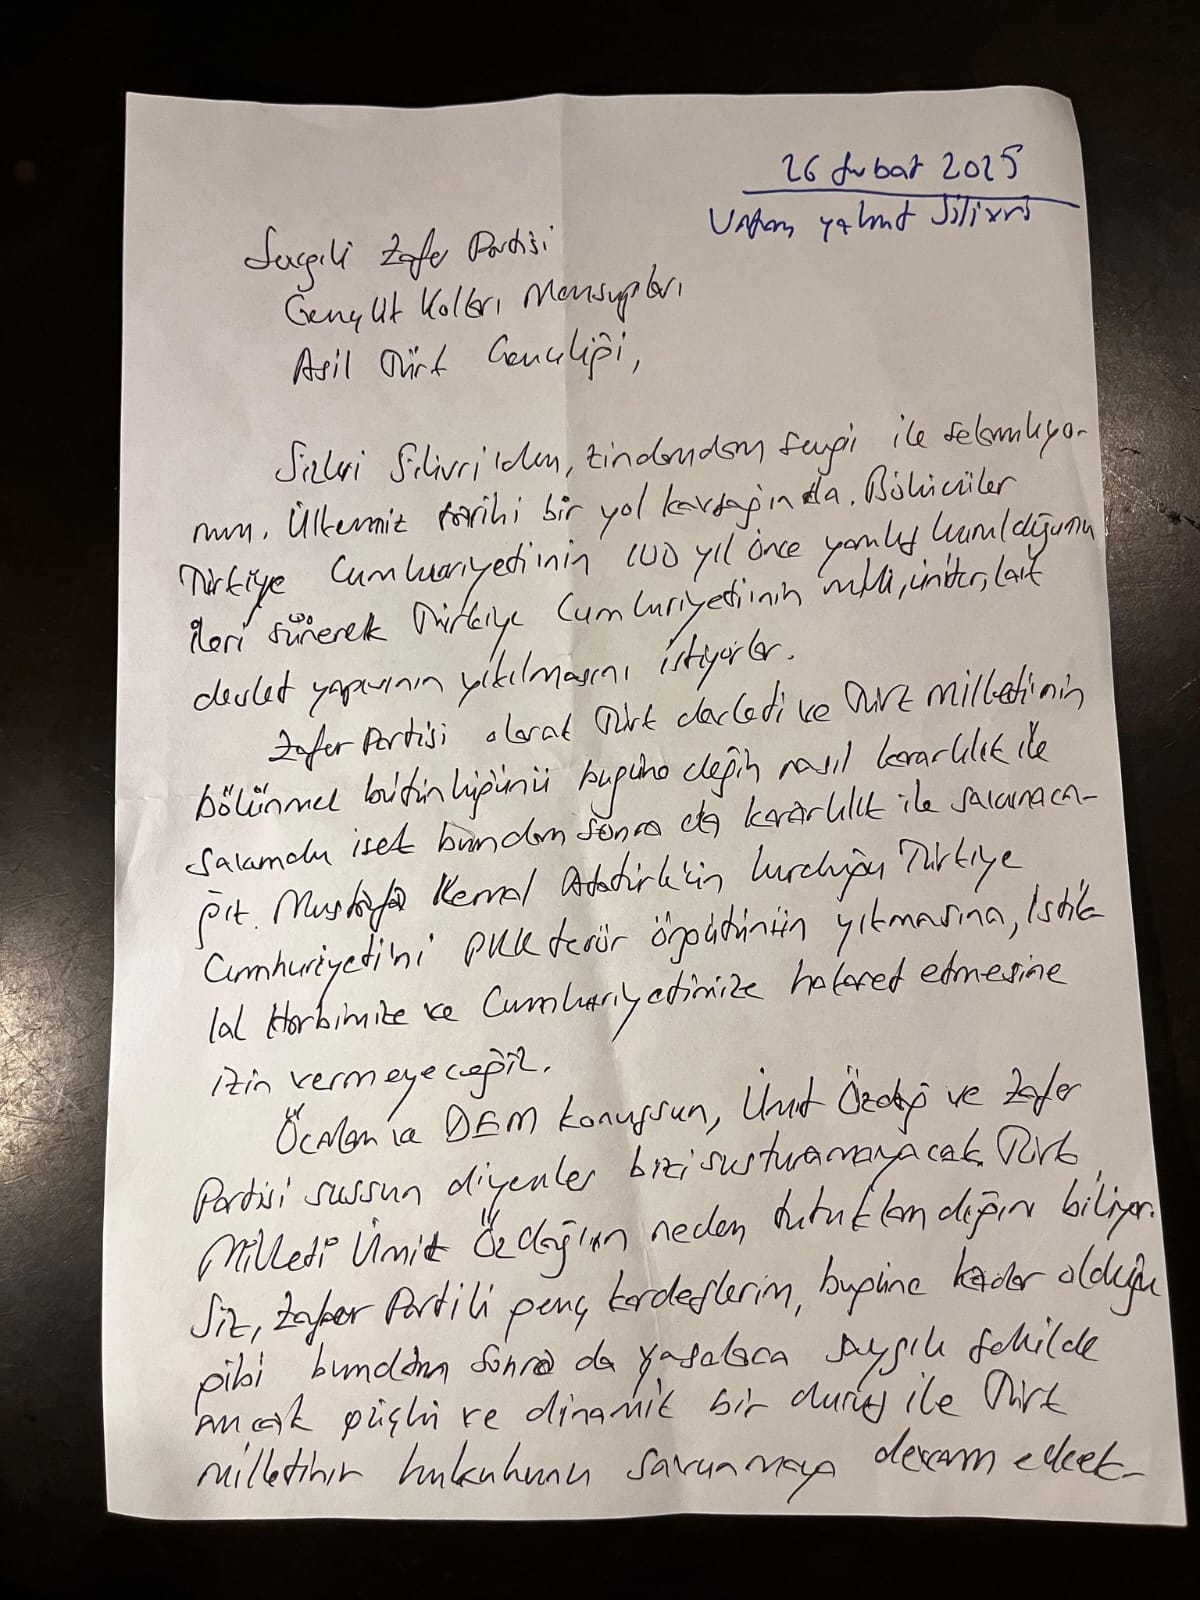 26 Şubat 2025
Vatan yahut Silivri
Sevgili Zafer Partisi
Gençlik Kolları Mensupları
Asil Türk Gençliği,
Sizleri Silivri'den, zindandan sevgi ile selamlıyo-
rum. Ülkemiz tarihi bir yol kavşağında. Bölücüler
Türkiye Cumhuriyetinin 100 yıl önce yanlış kurulduğunu
ileri sürerek Türkiye Cumhuriyetinin milli, üniter, laik
devlet yapısının yıkılmasını istiyorlar.
Zafer Partisi olarak Türk devleti ve Türk Milletinin
bölünmez bütünlüğünü bugüne değin nasıl kararlılık ile
savunduk isek bundan sonra da kararlılık ile savunaca-
ğız. Mustafa Kemal Atatürk'ün kurduğu Türkiye
Cumhuriyeti'ni PKK terör örgütünün yıkmasına, İstik-
lal Harbimize ve Cumhuriyetimize hakaret etmesine
izin vermeyeceğiz.
Öcalan ve DEM konuşsun, Ümit Özdağ ve Zafer
Partisi sussun diyenler bizi susturamayacak. Türk
Milleti Ümit Özdağ'ın neden tutuklandığını biliyor.
Siz, Zafer Partili genç kardeşlerim, bugüne kadar olduğu
gibi bundan sonra da yasalara saygılı şekilde
ancak güçlü ve dinamik bir duruş ile Türk
milletinin hukukunu savunmaya devam edecek-